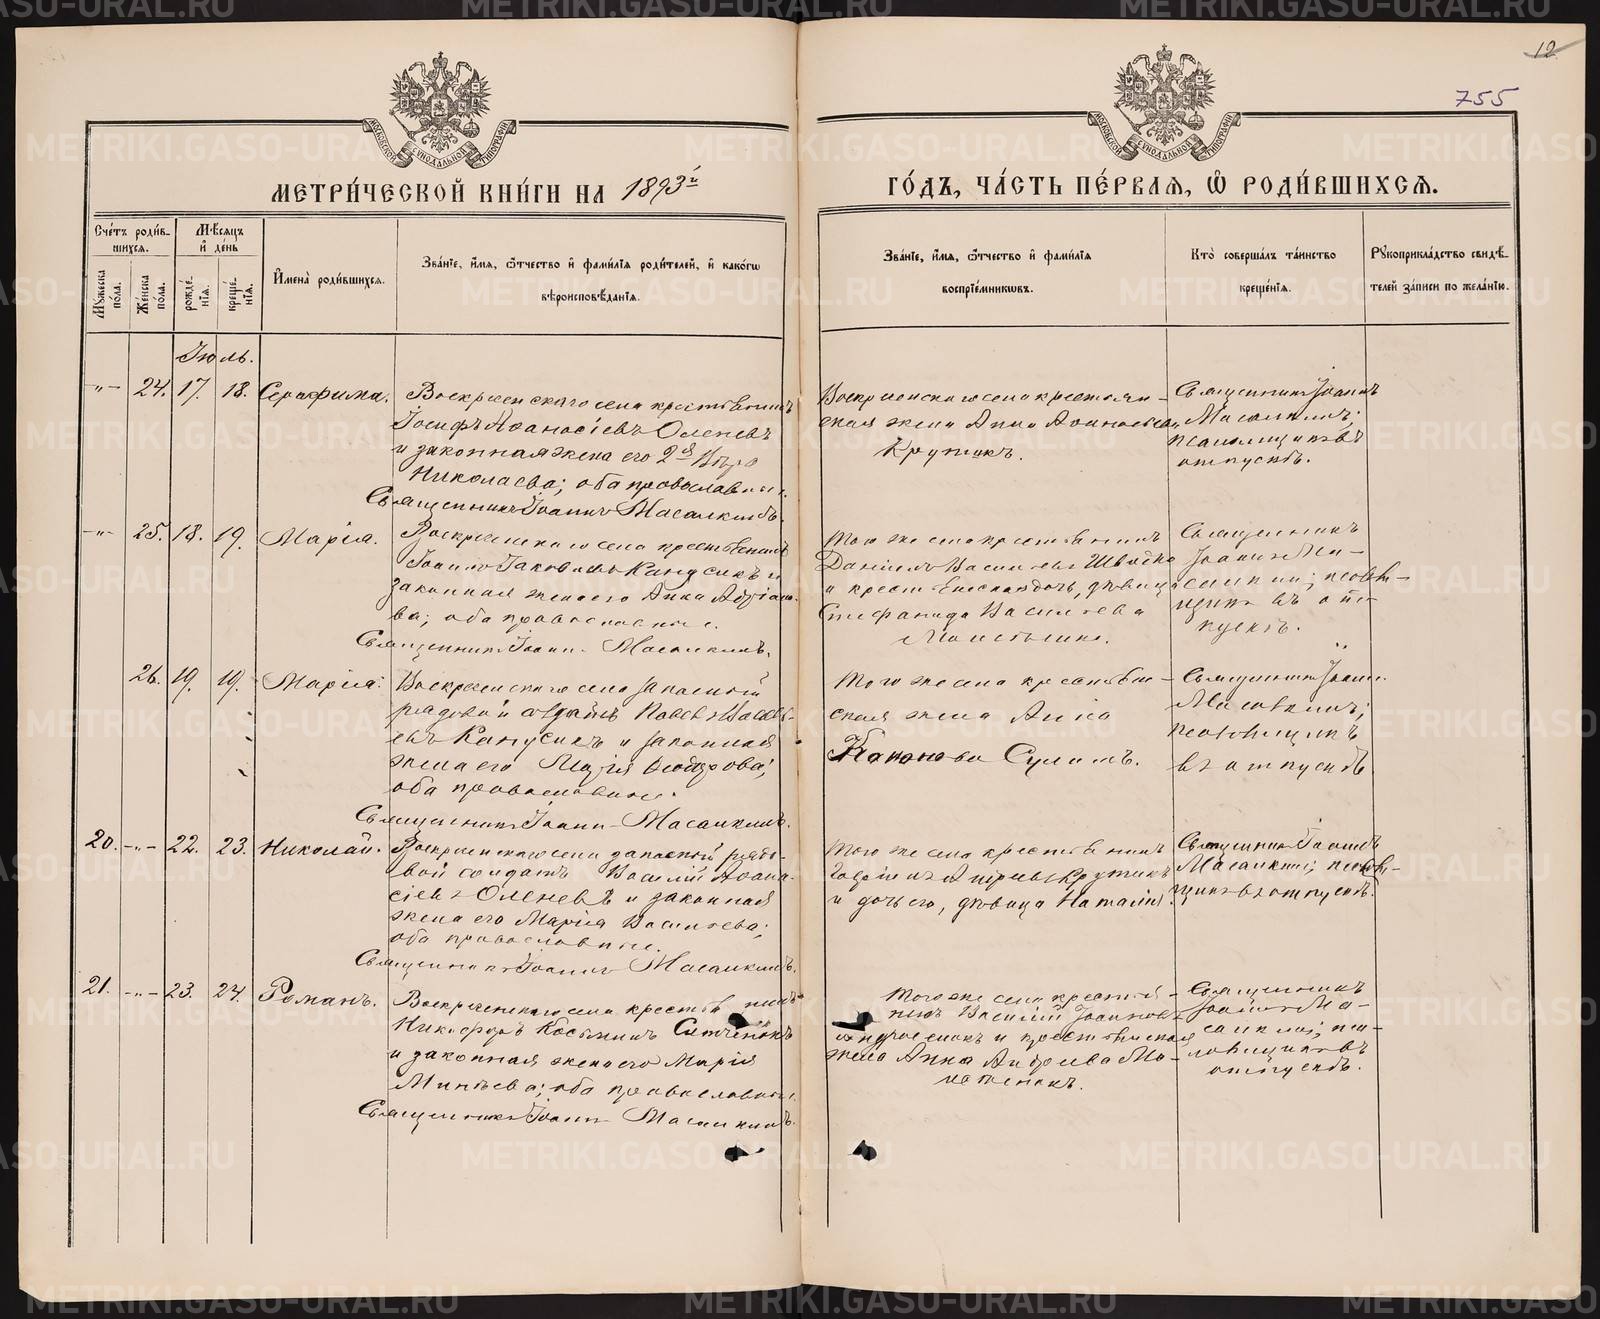 12
755
МОСКОВСКОЙ СѴНОДАЛЬНОЙ ТИПОГРАФІИ
МОСКОВСКОЙ СѴНОДАЛЬНОЙ ТИПОГРАФІИ
МЕТРИ́ЧЕСКОЙ КНИ́ГИ НА 1893й
ГО́ДЪ, ЧА́СТЬ ПЕ́РВАЯ, Ѡ҆ РОДИ́ВШИХСЯ.
Сче́тъ роди́в-
шихся.
Мѣ́сяцъ
и҆ де́нь
Мꙋ́жеска по́ла.
Же́нска по́ла.
рожде́-
нїѧ.
креще́-
нїѧ.
И҆мена̀ роди́вшихся.
Зва́нїе, и҆́мя, ѻ҆́тчество и҆ фами́лїя роди́телей, и҆ како́гѡ
вѣроисповѣ́данїя.
Зва́нїе, и҆́мя, ѻ҆́тчество и҆ фами́лїя
воспрїе́мникѡвъ.
Кто̀ соверша́лъ та́инство
креще́нїя.
Рꙋкоприкла́дство свидѣ́-
телей за́писи по жела́нїю.
Іюль.
-"- 24. 17. 18. Серафима.
Воскресенскаго села крестьянинъ
Іосифъ Аѳанасіевъ Оленевъ
и законная жена его 2я Вѣра
Николаева; оба православные.
Священникъ Іоаннъ Масалкинъ.
Воскресенскаго села крестьян-
ская жена Анна Аѳанасьева
Крутикъ.
Священникъ Іоаннъ
Масалкинъ;
псаломщикъ въ
отпускѣ.
-"- 25. 18. 19. Марія.
Воскресенскаго села крестьянинъ
законная жена его Анна
ва; оба православные.
Священникъ Іоаннъ Масалкинъ.
того же села крестьянинъ
Даніилъ Васильевъ
дѣвица
Стефанида Васильева
Священникъ
Іоаннъ Ма-
салкинъ; псалом-
щикъ въ от-
пускѣ.
26. 19. 19. Марія.
Воскресенскаго села запасный
рядовой солдатъ
Капусикъ и законная
жена его Марія Ѳедорова;
оба православные.
Священникъ Іоаннъ Масалкинъ.
того же села крестьян-
ская жена Анна
Сулимъ.
Священникъ Іоаннъ
Масалкинъ;
псаломщикъ
въ отпускѣ.
20. -"- 22. 23. Николай.
Воскресенскаго села запасной рядо-
вой солдатъ Василій Аѳана-
сіевъ Оленевъ и законная
жена его Марія Васильева;
оба православные.
Священникъ Іоаннъ Масалкинъ.
того же села крестьянинъ
Крутикъ
и дочь его, дѣвица Наталія.
Священникъ Іоаннъ
Масалкинъ; псалом-
щикъ въ отпускѣ.
21. -"- 23. 24. Романъ.
Воскресенскаго села крестьянинъ
Никифоръ Косьминъ
и законная жена его Марія
оба православные.
Священникъ Іоаннъ Масалкинъ.
того же села крестья-
нинъ Василій Іоанновъ
и крестьянская
жена Анна Андреева
Священникъ
Іоаннъ Ма-
салкинъ; пса-
ломщикъ въ
отпускѣ.
METRIKI.GASO-URAL.RU